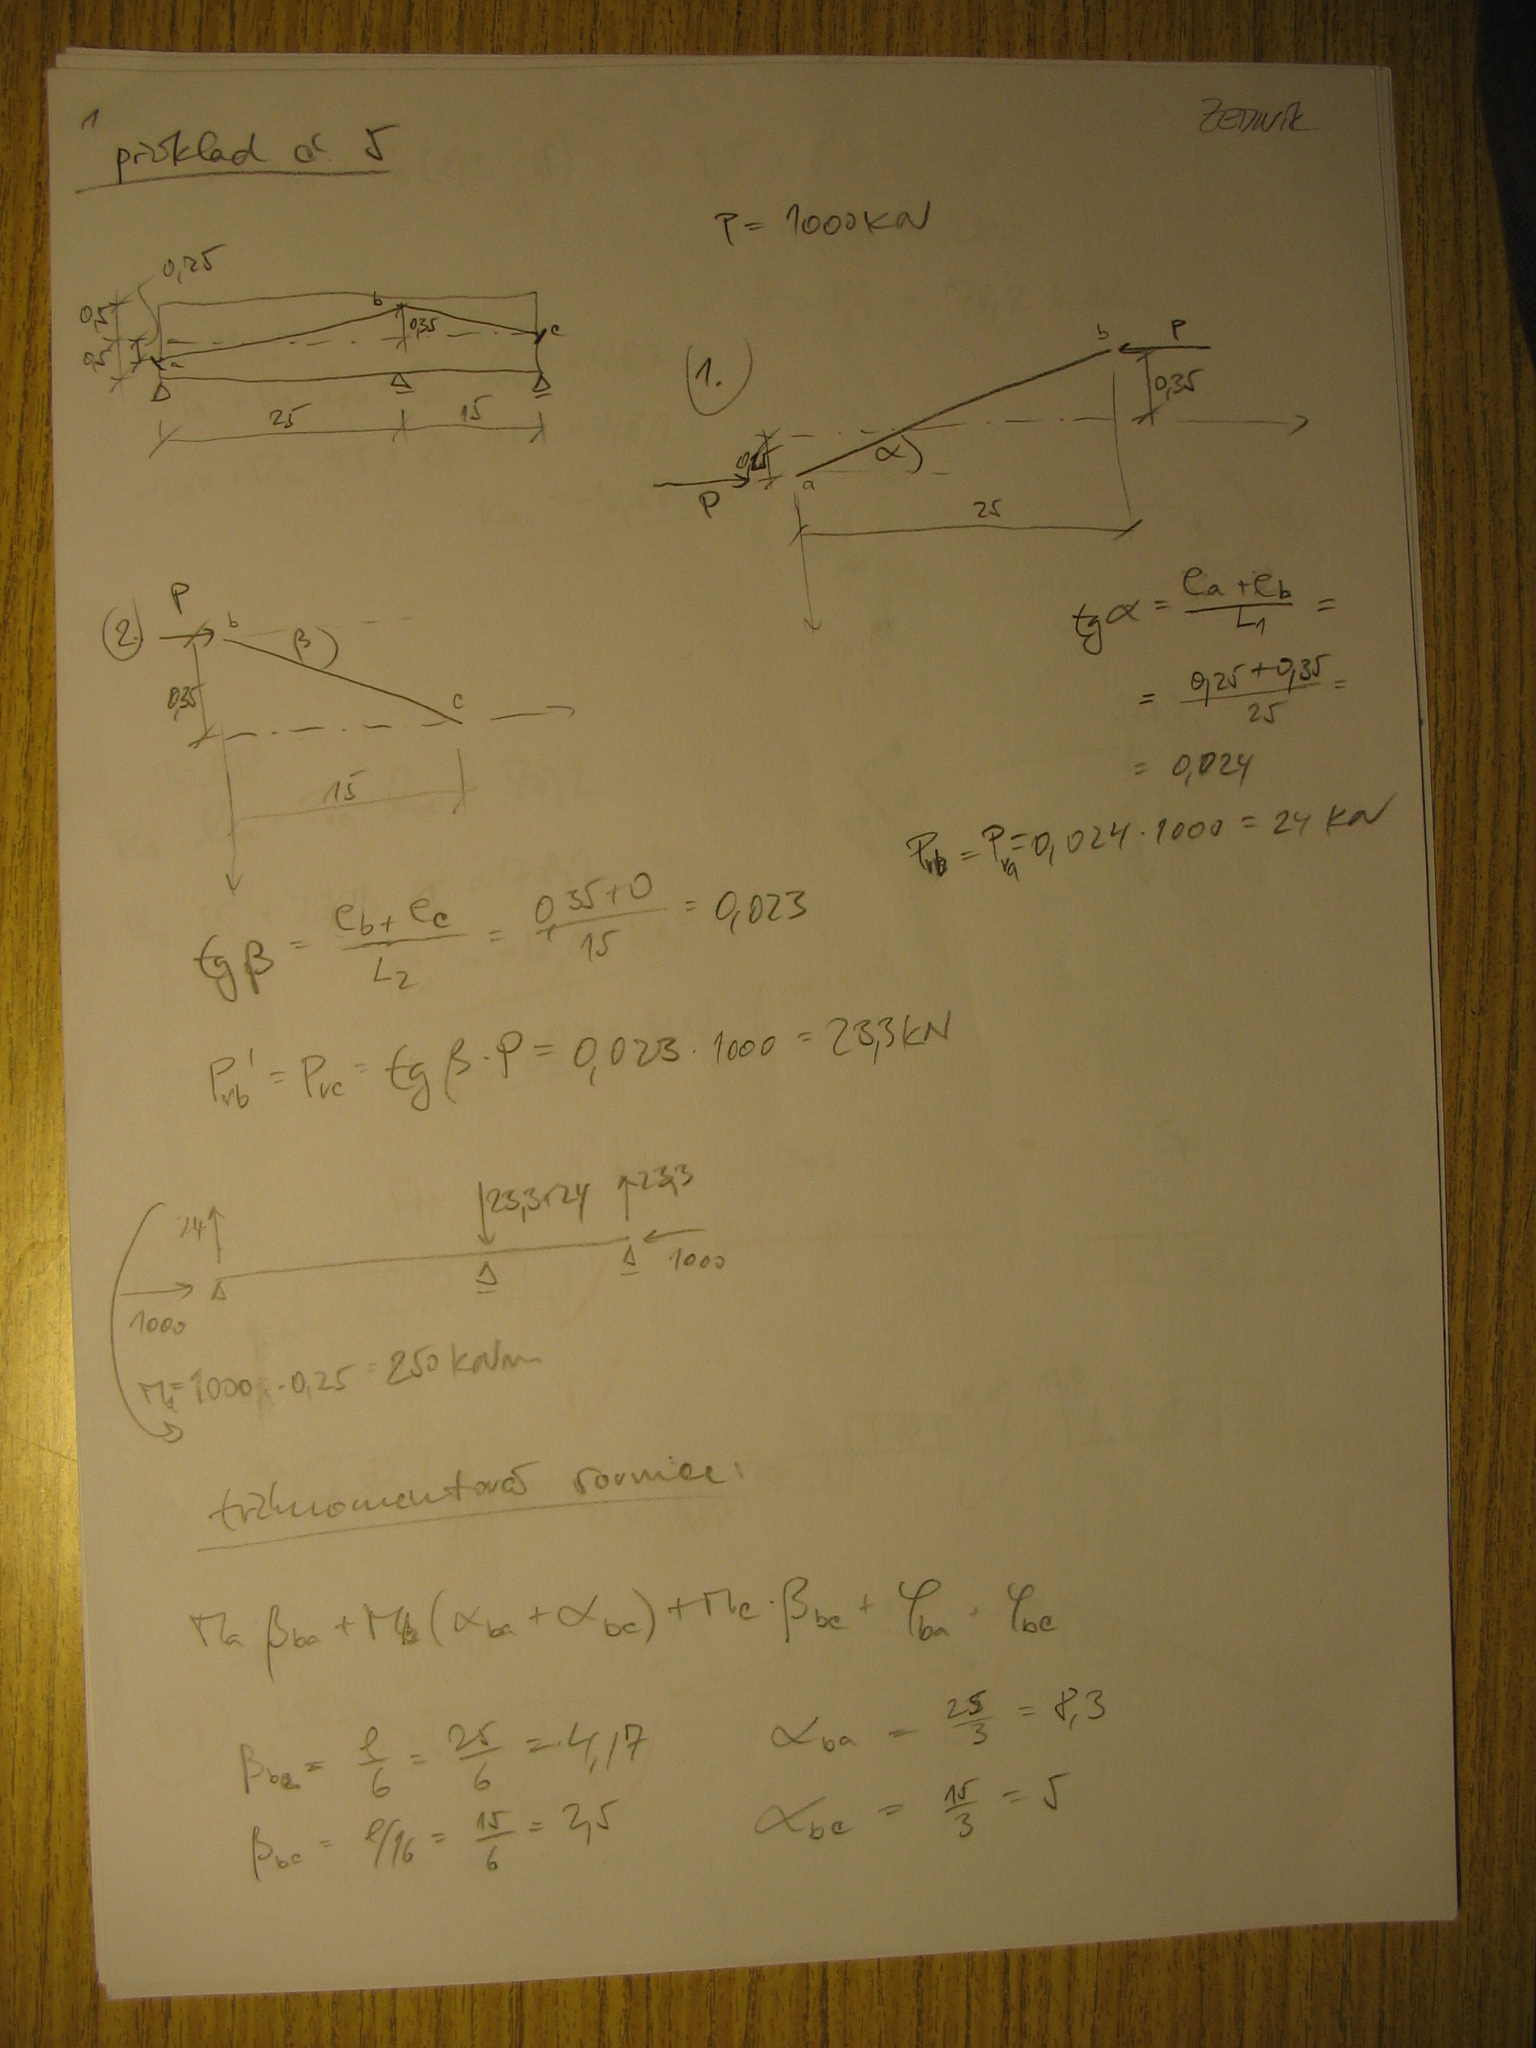 1
ZEDNIK
příklad č 5
P = 1000 kN
0,25
0,5
0,5
a
b
0,35
c
25
15
1.
b
P
0,35
0,25
α
a
P
25
2.
P
b
β
0,35
c
15
tg α = (ea + eb) / L1 =
= (0,25 + 0,35) / 25 =
= 0,024
Pvb = Pva = 0,024 · 1000 = 24 kN
tg β = (eb + ec) / L2 = (0,35 + 0) / 15 = 0,023
Pvb' = Pvc = tg β · P = 0,023 · 1000 = 23,3 kN
24
23,3+24
23,3
1000
1000
Ma = 1000 · 0,25 = 250 kNm
třímomentová rovnice:
Ma βba + Mb (αba + αbc) + Mc · βbc + φba + φbc
βba = l/6 = 25/6 = 4,17
αba = 25/3 = 8,3
βbc = l/6 = 15/6 = 2,5
αbc = 15/3 = 5